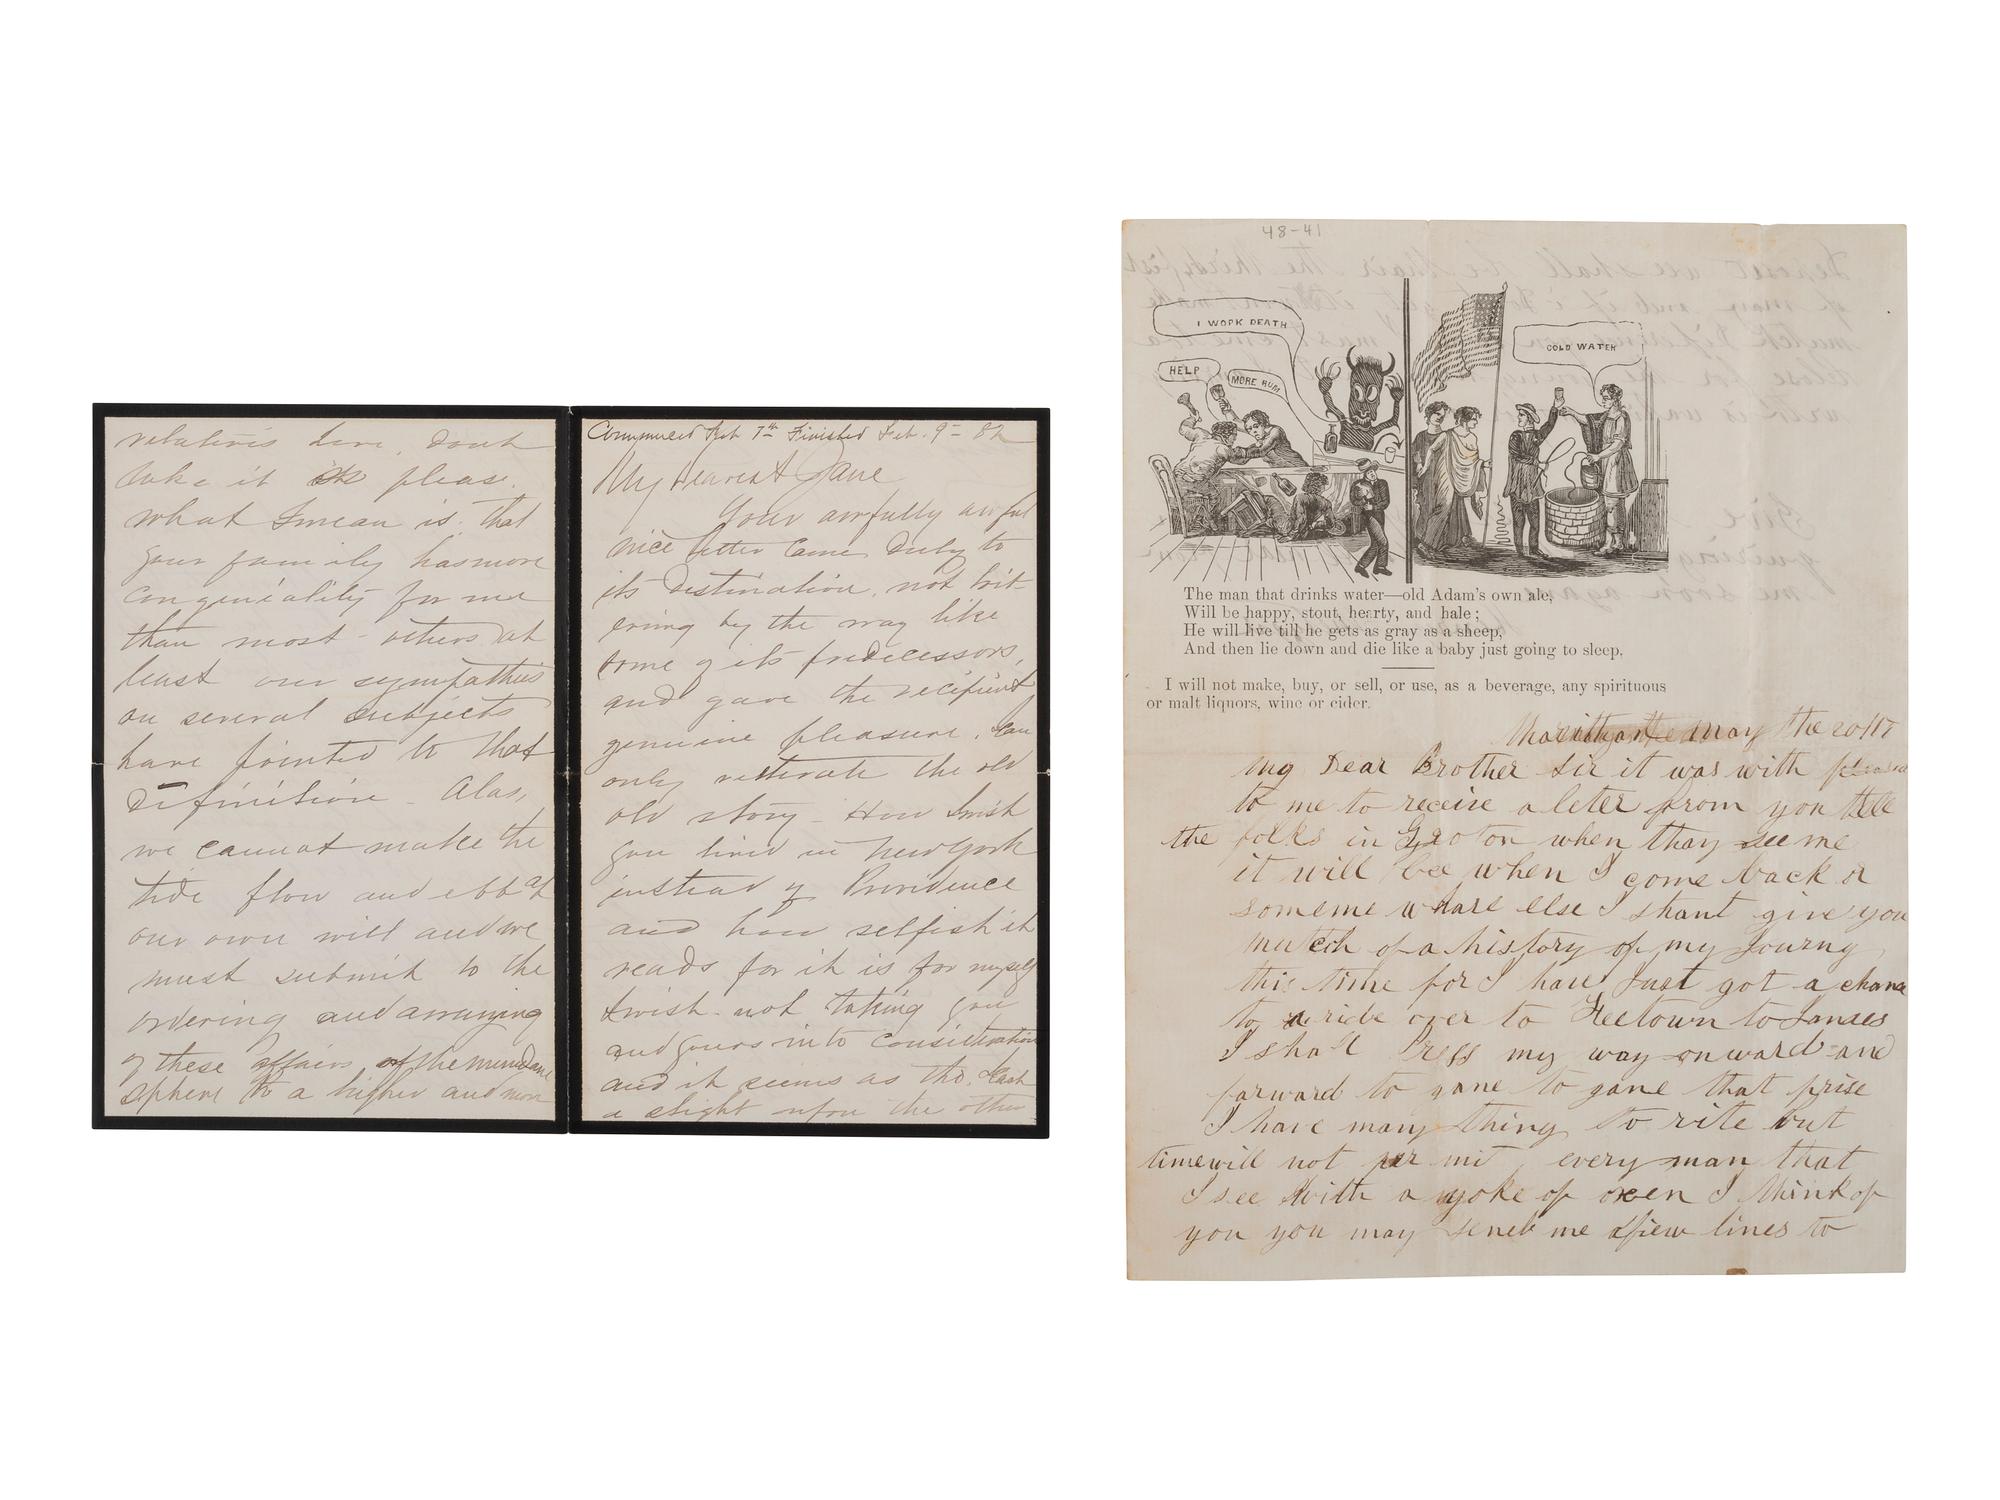 relatives here, dont
take it so please.
what I mean is that
your family has more
congeniality for me
than most others at
least our sympathies
on several subjects
have pointed to that
Definition. Alas,
we cannot make the
tide flow and ebb at
our own will and we
must submit to the
ordering and arranging
of these affairs of the mundane
sphere to a higher and more
Commenced Feb 7th Finished Feb. 9 - 82
My Dearest Jane
Your awfully awful
nice letter came Duly to
its Destination, not loit-
ering by the way like
some of its predecessors,
and gave the recipient
genuine pleasure. I can
only reiterate the old
old story - How I wish
you lived in New York
instead of Providence
and how selfish it
reads for it is for myself
I wish - not taking you
and yours into consideration
and it seems as tho. I cast
a slight upon the other
48-41
I WORK DEATH
HELP
MORE RUM
COLD WATER
The man that drinks water—old Adam's own ale,
Will be happy, stout, hearty, and hale;
He will live till he gets as gray as a sheep,
And then lie down and die like a baby just going to sleep.
I will not make, buy, or sell, or use, as a beverage, any spirituous
or malt liquors, wine or cider.
May the 20
My Dear Brother Sir it was with
to me to receive a leter from you tell
the folks in Groton when thay see me
it will bee when I come back or
someme whare else I shant give you
mutch of a history of my Journy
this time for I have Just got a chance
to ride over to Freetown to
I shall Press my way onward and
forward to gane to gane that prise
I have many thing to rite but
time will not per mit, every man that
I see With a yoke of oxen I think of
you you may send me a few lines to